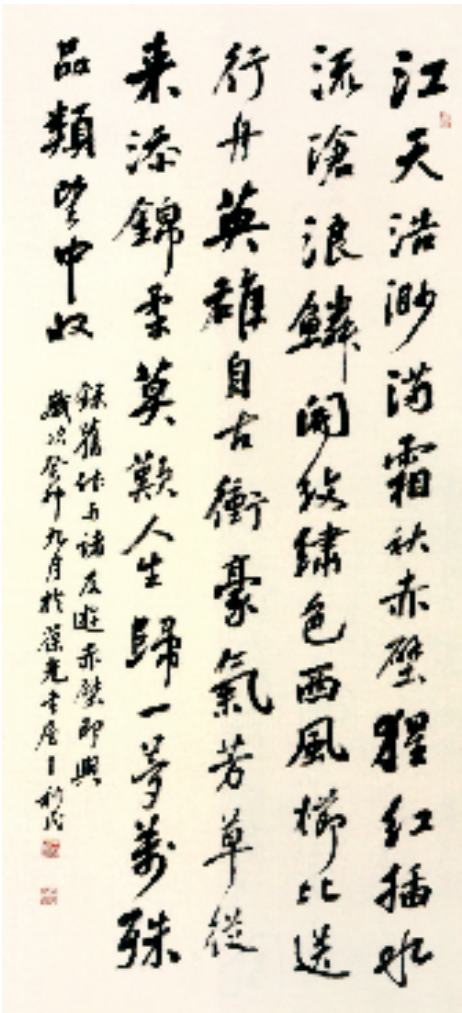 江天浩渺満霜秋赤壁猩红插水
流滄浪鳞開紋繡色西風櫛比送
行舟英雄自古衝豪氣芳草從
来添錦柔莫歎人生歸一夢萬殊
品類望中收
録舊作与诸友遊赤壁即興
歲次癸卯九月於葆光書屋王利民